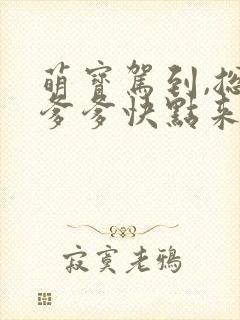 萌寶駕到,
爹爹快點來
寂寞老鴉